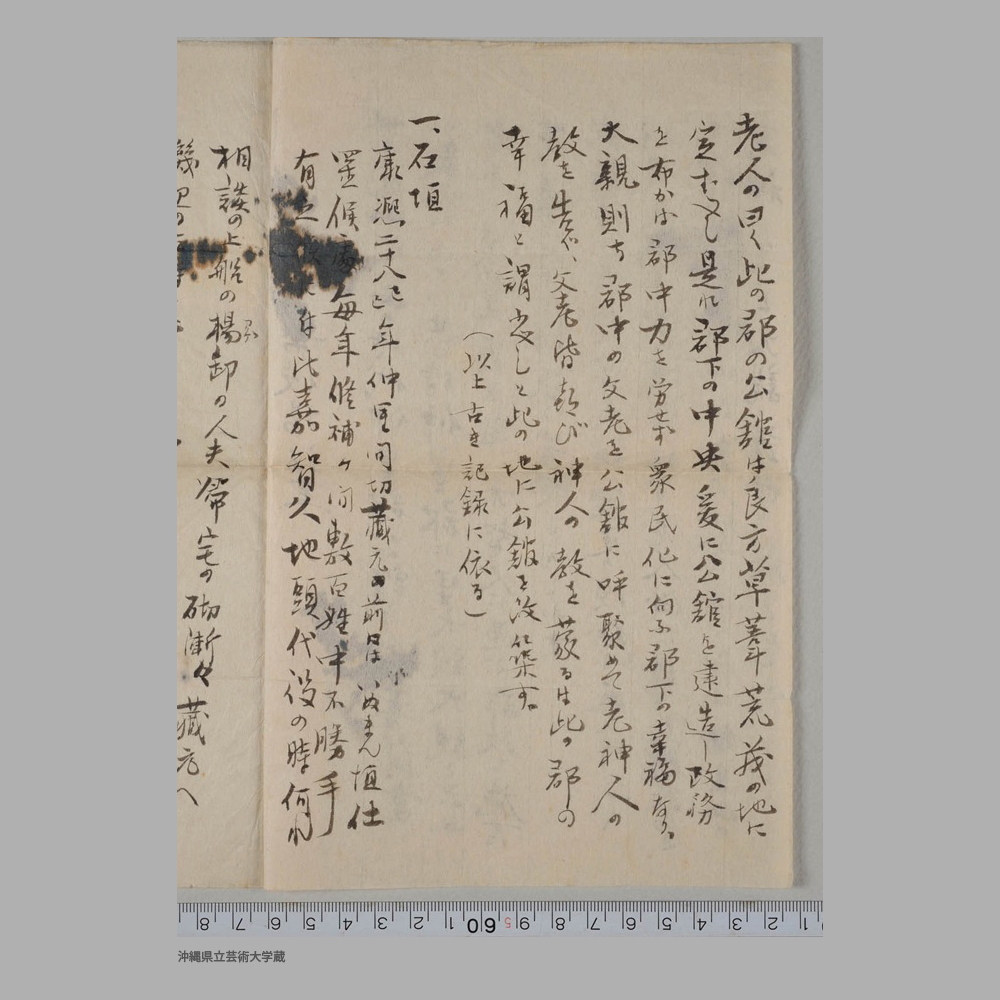 老人の曰く此の郡の公館は良方草莽荒茂の地に
定むべし是れ郡下の中央爰に公館を建造し政務
を布かば郡中力を労せず衆民化に向ふ郡下の幸福なり。
大親則ち郡中の父老を公館に呼聚めて老神人の
教を告ぐ、父老皆喜び神人の教を蒙るは此の郡の
幸福と謂ふべしと此の地に公館を改化築す。
(以上古き記録に依る)
一、石垣
康熙二十八己巳年仲里間切蔵元の前日はいぬまん垣仕
置候処毎年修補ケ間敷百姓中不勝手
有之 比嘉智久地頭代役の時何れ
相談の上船の楊卸の人夫帰宅の砌漸々蔵元へ
幾
8 7 6 5 4 3 2 1 60 9 8 7 6 5 4 3 2 1
沖縄県立芸術大学蔵